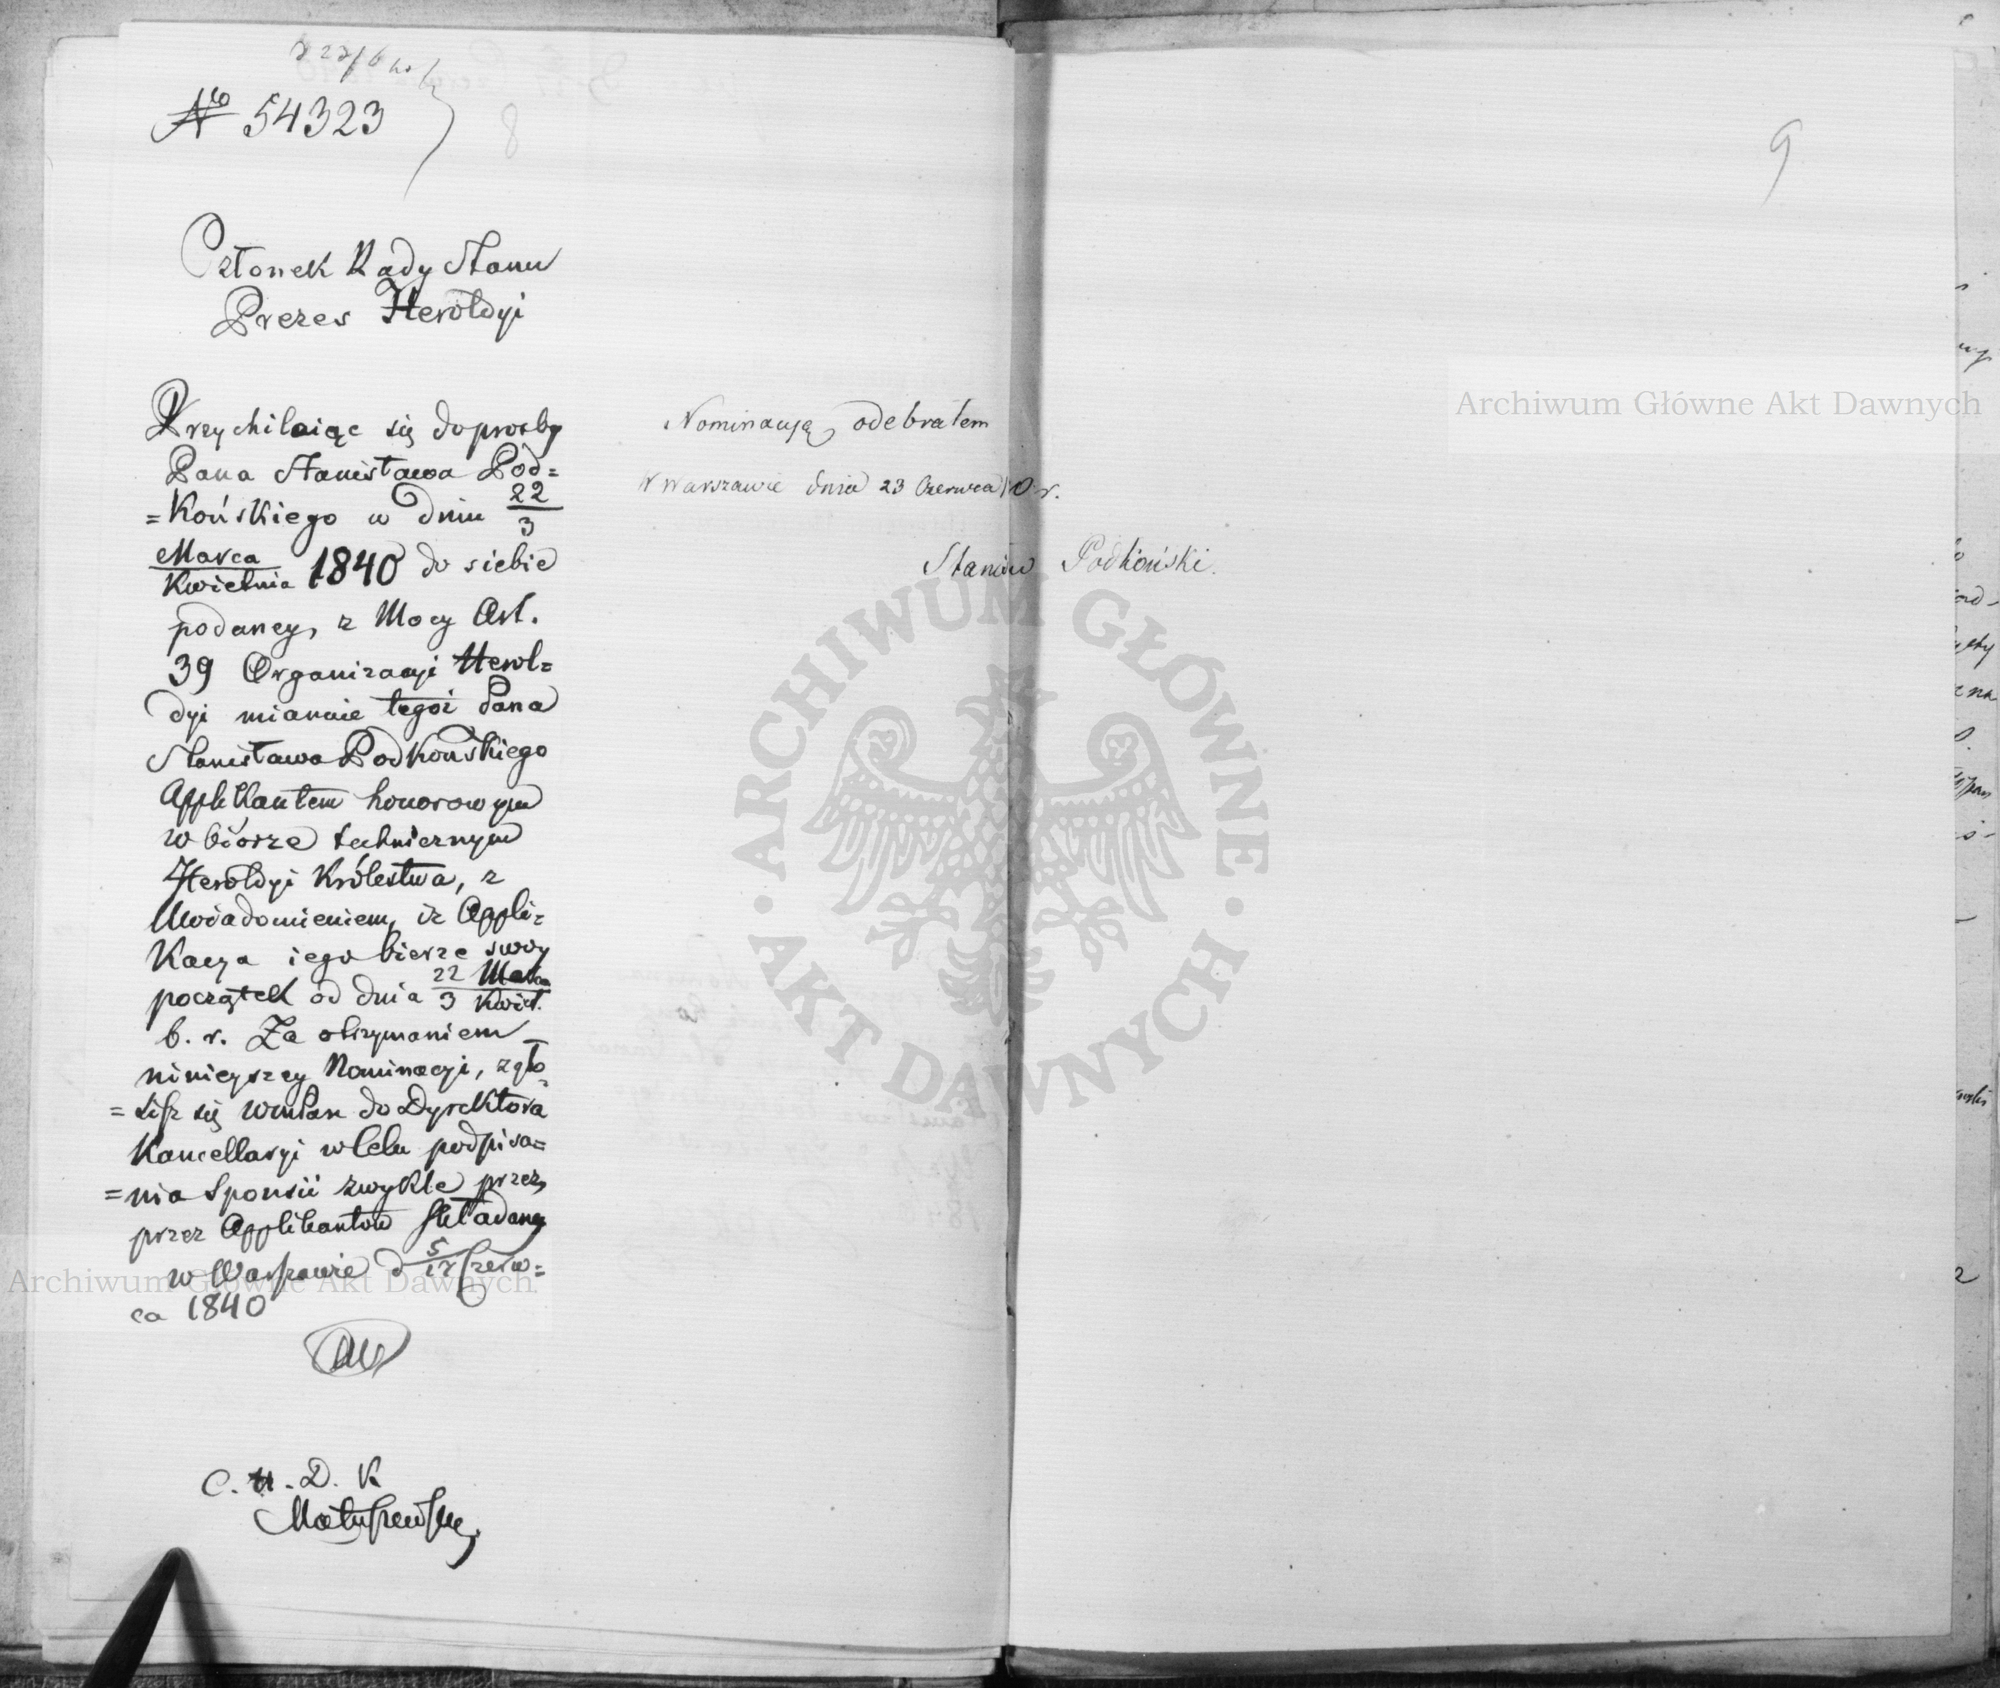 No 54323
Członek Rady Stanu
Prezes Heroldyi
Przychilaiąc się do prosby
Pana Stanisława Pod=
=Końskiego w dniu 22/3
Marca/Kwietnia 1840 do siebie
podaney, z Mocy Art.
39 Organizacyi Herol=
dyi mianuie tegoż Pana
Stanisława Podkońskiego
Applikantem honorowym
w biorze technicznym
Heroldyi Królestwa, z
Uwiadomieniem, iż Appli=
Kacya iego bierze swoy
początek od dnia 22 Marca/3 Kwiet.
b. r. Za otrzymaniem
ninieyszey Nominacyi, zgło=
=sisz się WmPan do Dyrektora
Kancellaryi w Celu podpisa=
=nia Sponsii zwykle przez
przez Applikantów składaney
w Warszawie d 5/17 Czerw=
ca 1840
C. U. D. K
Matuszewski
Nominacyę odebrałem
w Warszawie dnia 23 Czerwca 1840 r.
Stanisław Podkoński.
9
Archiwum Główne Akt Dawnych
Archiwum Główne Akt Dawnych
ARCHIWUM GŁÓWNE
AKT DAWNYCH